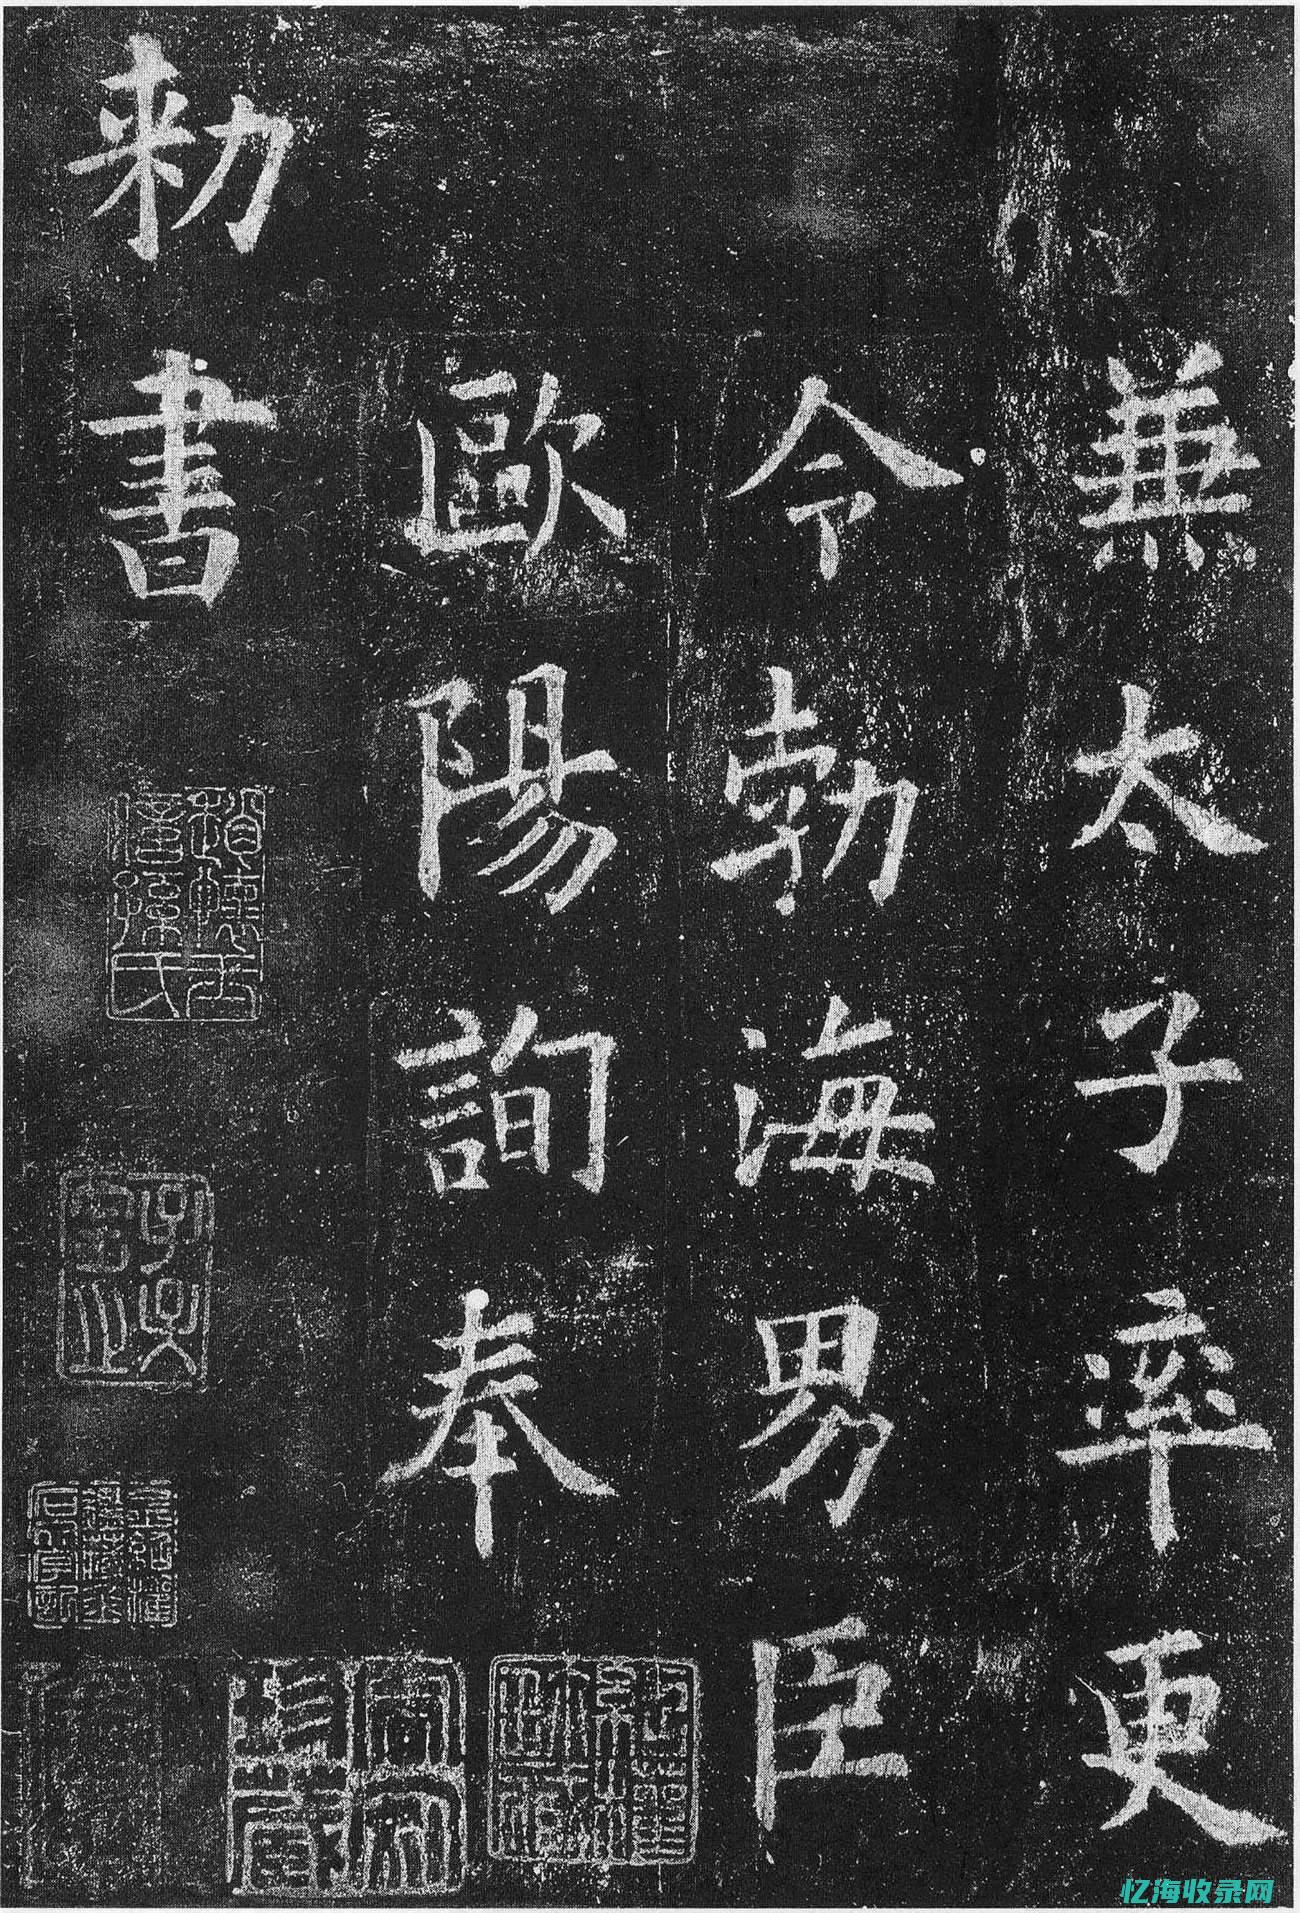 兼太子率更
令勃海男臣
歐陽詢奉
勑書
忆海收录网